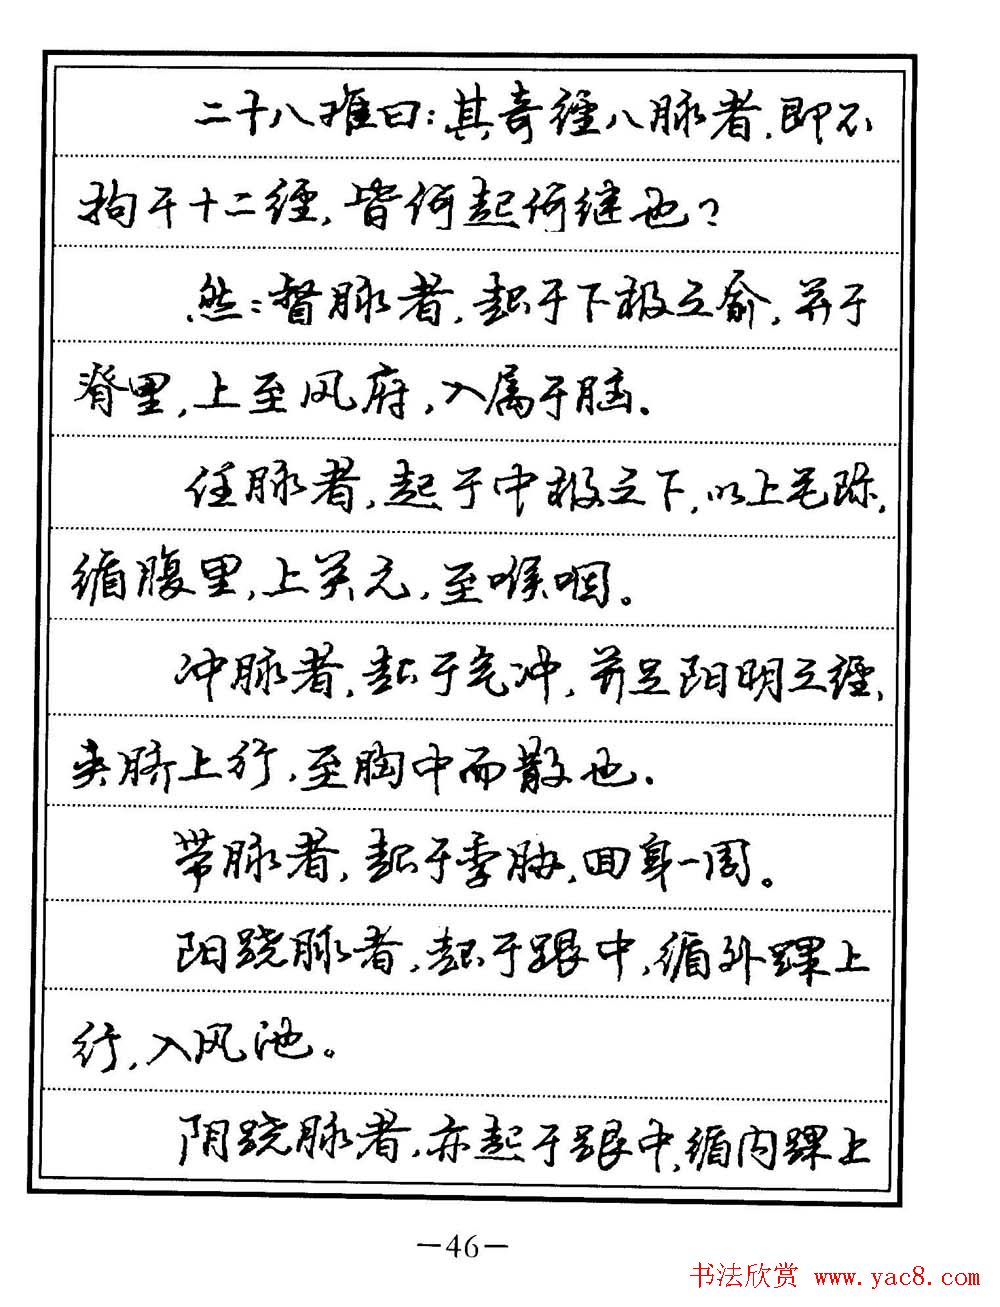 二十八难曰：其奇经八脉者，即不
拘于十二经，皆何起何继也？
然：督脉者，起于下极之俞，并于
脊里，上至风府，入属于脑。
任脉者，起于中极之下，以上毛际，
循腹里，上关元，至喉咽。
冲脉者，起于气冲，并足阳明之经，
夹脐上行，至胸中而散也。
带脉者，起于季胁，回身一周。
阳跷脉者，起于跟中，循外踝上
行，入风池。
阴跷脉者，亦起于跟中，循内踝上
—46—
书法欣赏 www.yac8.com